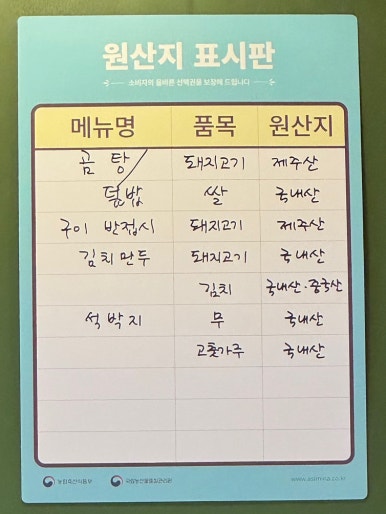 원산지 표시판
소비자의 올바른 선택권을 보장해 드립니다
메뉴명 품목 원산지
곰탕 돼지고기 제주산
덮밥 쌀 국내산
구이 반접시 돼지고기 제주산
김치만두 돼지고기 국내산
김치 국내산·중국산
석박지 무 국내산
고춧가루 국내산
농림축산식품부 국립농산물품질관리원